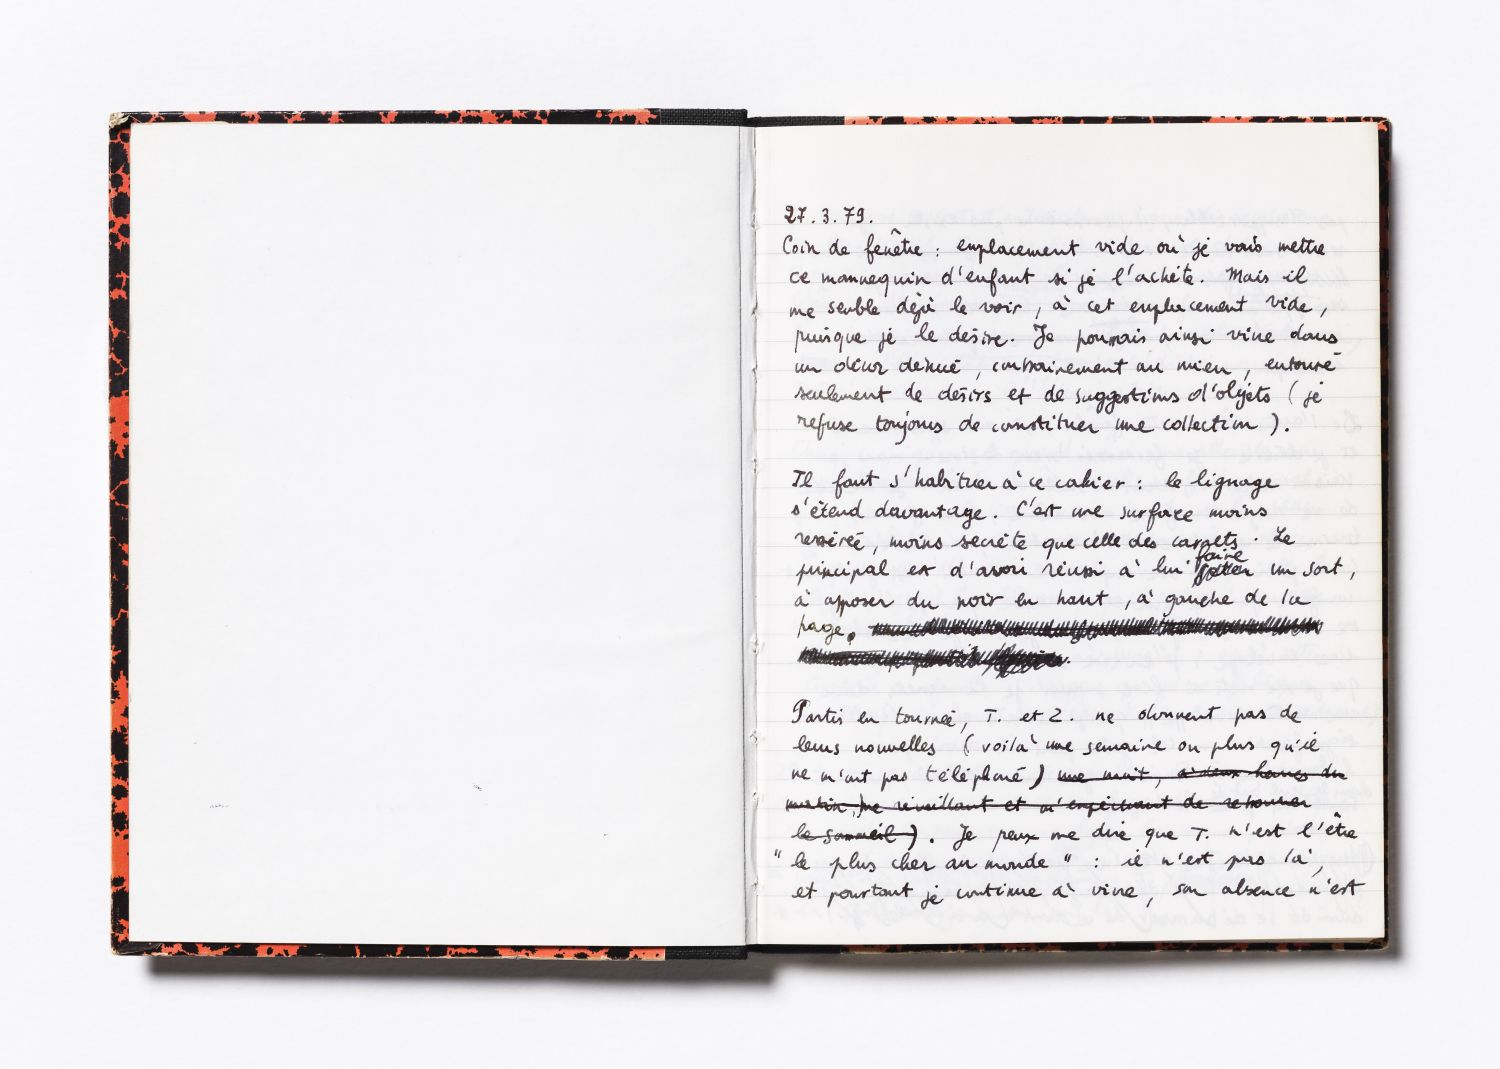 27.3.79.
Coin de fenêtre : emplacement vide où je vais mettre
ce mannequin d'enfant si je l'achète. Mais il
me semble déjà le voir, à cet emplacement vide,
puisque je le désire. Je pourrais ainsi vivre dans
un décor dénué, contrairement au mien, entouré
seulement de désirs et de suggestions d'objets (je
refuse toujours de constituer une collection).
Il faut s'habituer à ce cahier : le lignage
s'étend davantage. C'est une surface moins
resserrée, moins secrète que celle des carnets. Le
principal est d'avoir réussi à lui faire un sort,
à apposer du noir en haut, à gauche de la
page.
Partis en tournée, T. et Z. ne donnent pas de
leurs nouvelles (voilà une semaine ou plus qu'ils
ne m'ont pas téléphoné) une nuit, à deux heures du
matin, me réveillant et m'empêchant de retrouver
le sommeil). Je peux me dire que T. n'est l'être
"le plus cher au monde" : il n'est pas là,
et pourtant je continue à vivre, son absence n'est